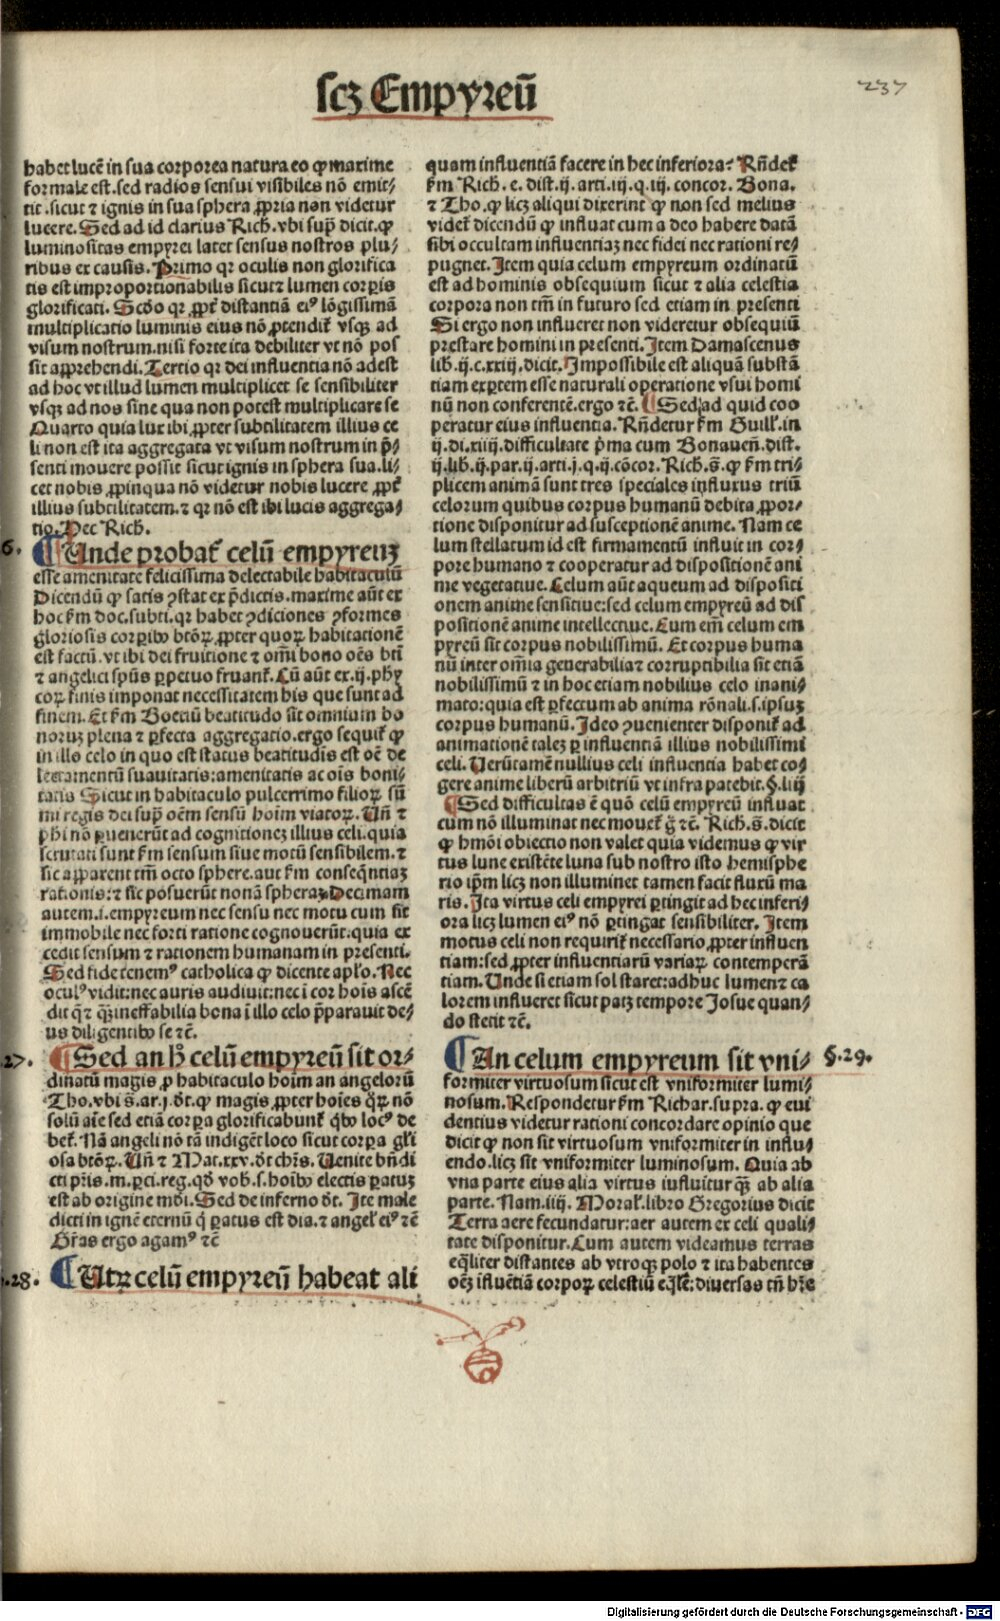 scz Empyreū
237
habet lucē in sua corporea natura eo ꝙ maxime
formale est. sed radios sensui visibiles nō emit-
tit. sicut ⁊ ignis in sua sphera ꝓpria non videtur
lucere. Sed ad id clarius Rich. vbi supͣ dicit. ꝙ
luminositas empyrei latet sensus nostros plu-
ribus ex causis. Primo qꝛ oculis non glorifica
tis est improportionabilis sicut ⁊ lumen corꝑis
glorificati. Scd̄o qꝛ ꝓpt̄ distantiā eiꝰ lōgissimā
multiplicatio luminis eius nō ꝓtendit̄ vsqꝫ ad
visum nostrum. nisi forte ita debiliter vt nō pos
sit apprehendi. Tertio qꝛ dei influentia nō adest
ad hoc vt illud lumen multiplicet se sensibiliter
vsqꝫ ad nos sine qua non potest multiplicare se
Quarto quia lux ibi ꝓpter subtilitatem illius ce
li non est ita aggregata vt visum nostrum in p̄-
senti mouere possit sicut ignis in sphera sua. li-
cet nobis ꝓpinqua nō videtur nobis lucere ꝓpt̄
illius subtilitatem. ⁊ qꝛ nō est ibi lucis aggrega-
tio. Hec Rich.
6. ¶ Unde probat̄ celū empyreuꝫ
esse amenitate felicissima delectabile habitaculū
Dicendū ꝙ satis ꝯstat ex p̄dictis. maxime aūt ex
hoc ẜm doc. subti. qꝛ habet ꝯdiciones ꝯformes
gloriosis corꝑibꝰ btōꝝ. ꝓpter quoꝝ habitationē
est factū. vt ibi dei fruitione ⁊ om̄i bono oēs bt̄i
⁊ angelici spūs ꝑpetuo fruant̄. Cū aūt ex .ij. phy
coꝝ finis imponat necessitatem his que sunt ad
finem. Et ẜm Boeciū beatitudo sit omnium bo
noruꝫ plena ⁊ ꝑfecta aggregatio. ergo sequit̄ ꝙ
in illo celo in quo est status beatitudīs est oē de
lectamentū suauitatis: amenitatis ac oīs boni-
tatis Sicut in habitaculo pulcerrimo filioꝝ sū
mi regis dei supͣ oēm sensū hoīm viatoꝝ. Un̄ ⁊
phi nō ꝑuenerūt ad cognitionez illius celi. quia
scrutati sunt ẜm sensum siue motū sensibilem. ⁊
sic apparent tm̄ octo sphere. aut ẜm conseqn̄tiaꝫ
rationis: ⁊ sic posuerūt nonā spheraꝫ Decimam
autem .i. empyreum nec sensu nec motu cum sit
immobile nec forti ratione cognouerūt. quia ex
cedit sensum ⁊ rationem humanam in presenti.
Sed fide tenemꝰ catholica ꝙ dicente apl̄o. Nec
oculꝰ vidit: nec auris audiuit: nec ī cor hoīs ascē
dit q̄ ⁊ qͣꝫ ineffabilia bona ī illo celo p̄parauit de-
us diligentibꝰ se ⁊c̄.
.27. ¶ Sed an h̄ celū empyreū sit or-
dinatū magis ꝓ habitaculo hoīm an angeloꝝ
Tho. vbi s̄. ar. j. dt̄. ꝙ magis ꝓpter hoīes q̄ꝝ nō
solū aīe sed etiā corꝑa glorificabunt̄ qͥbꝰ locꝰ de
bet̄. Nā angeli nō tā indigēt loco sicut corꝑa gl̄i
osa btōꝝ. Un̄ ⁊ Mat. xxv. dt̄ chrs̄. Uenite bn̄di
cti pr̄is. m. ꝑci. reg. qd̄ vob. s. hoībꝰ electis ꝑatuꝫ
est ab origine mūdi. Sed de inferno dt̄. Ite male
dicti in ignē eternū q̇ ꝑatus est dia. ⁊ angel̄ eiꝰ ⁊c̄
Gr̄as ergo agamꝰ ⁊c̄
.28. ¶ Utꝝ celū empyreū habeat ali
quam influentiā facere in hec inferiora? Rn̄det̄
ẜm Rich. e. dist. ij. arti. iij. q. iij. concor. Bona.
⁊ Tho. ꝙ licꝫ aliqui dixerint ꝙ non sed melius
videt̄ dicendū ꝙ influat cum a deo habere datā
sibi occultam influentiaꝫ nec fidei nec rationi re-
pugnet. Item quia celum empyreum ordinatū
est ad hominis obsequium sicut ⁊ alia celestia
corpora non tm̄ in futuro sed etiam in presenti
Si ergo non influeret non videretur obsequiū
prestare homini in presenti. Item Damascenus
lib. ij. c. xxiij. dicit. Impossibile est aliquā substā
tiam exꝑtem esse naturali operatione vsui homi
nū non conferentē. ergo ⁊c̄. ¶ Sed ad quid coo
peratur eius influentia. Rn̄detur ẜm Guill. in
ij. di. xiiij. difficultate pͥma cum Bonauen̄. dist.
ij. lib. ij. par. ij. arti. j. q. ij. cōcor. Rich. s̄. ꝙ ẜm tri-
plicem animā sunt tres speciales influxus triū
celorum quibus corpus humanū debita ꝓpor-
tione disponitur ad susceptionē anime. Nam ce
lum stellatum id est firmamentū influit in cor-
pore humano ⁊ cooperatur ad dispositionē ani
me vegetatiue. Celum aūt aqueum ad dispositi
onem anime sensitiue: sed celum empyreū ad dis
positionē anime intellectiue. Cum em̄ celum em
pyreū sit corpus nobilissimū. Et corpus huma
nū inter om̄ia generabilia ⁊ corruptibilia sit etiā
nobilissimū ⁊ in hoc etiam nobilius celo inani-
mato: quia est ꝑfectum ab anima rōnali. s. ipsuꝫ
corpus humanū. Ideo ꝯuenienter disponit̄ ad
animationē talez ꝑ influentiā illius nobilissimi
celi. Uerūtamē nullius celi influentia habet co-
gere anime liberū arbitriū vt infra patebit. §. liij
¶ Sed difficultas ē quō celū empyreū influat
cum nō illuminat nec mouet̄ g̊ ⁊c̄. Rich. s̄. dicit
ꝙ hmōi obiectio non valet quia videmus ꝙ vir
tus lune existēte luna sub nostro isto hemisphe
rio ip̄m licꝫ non illuminet tamen facit fluxū ma
ris. Ita virtus celi empyrei ꝑtingit ad hec inferi-
ora licꝫ lumen eiꝰ nō ꝑtingat sensibiliter. Item
motus celi non requirit̄ necessario ꝓpter influen
tiam: sed ꝓpter influentiarū variaꝝ contemperā
tiam. Unde si etiam sol staret: adhuc lumen ⁊ ca
lorem influeret sicut patꝫ tempore Iosue quan-
do stetit ⁊c̄.
¶ An celum empyreum sit vni- §.29.
formiter virtuosum sicut est vniformiter lumi-
nosum. Respondetur ẜm Richar. supra. ꝙ eui
dentius videtur rationi concordare opinio que
dicit ꝙ non sit virtuosum vniformiter in influ-
endo. licꝫ sit vniformiter luminosum. Quia ab
vna parte eius alia virtus influitur qͣꝫ ab alia
parte. Nam. iiij. Moral̄. libro Gregorius dicit
Terra aere fecundatur: aer autem ex celi quali-
tate disponitur. Cum autem videamus terras
eqͣliter distantes ab vtroqꝫ polo ⁊ ita habentes
oēꝫ īfluētiā corpoꝝ celestiū eqͣlē: diuersas tn̄ hr̄e
Digitalisierung gefördert durch die Deutsche Forschungsgemeinschaft - DFG